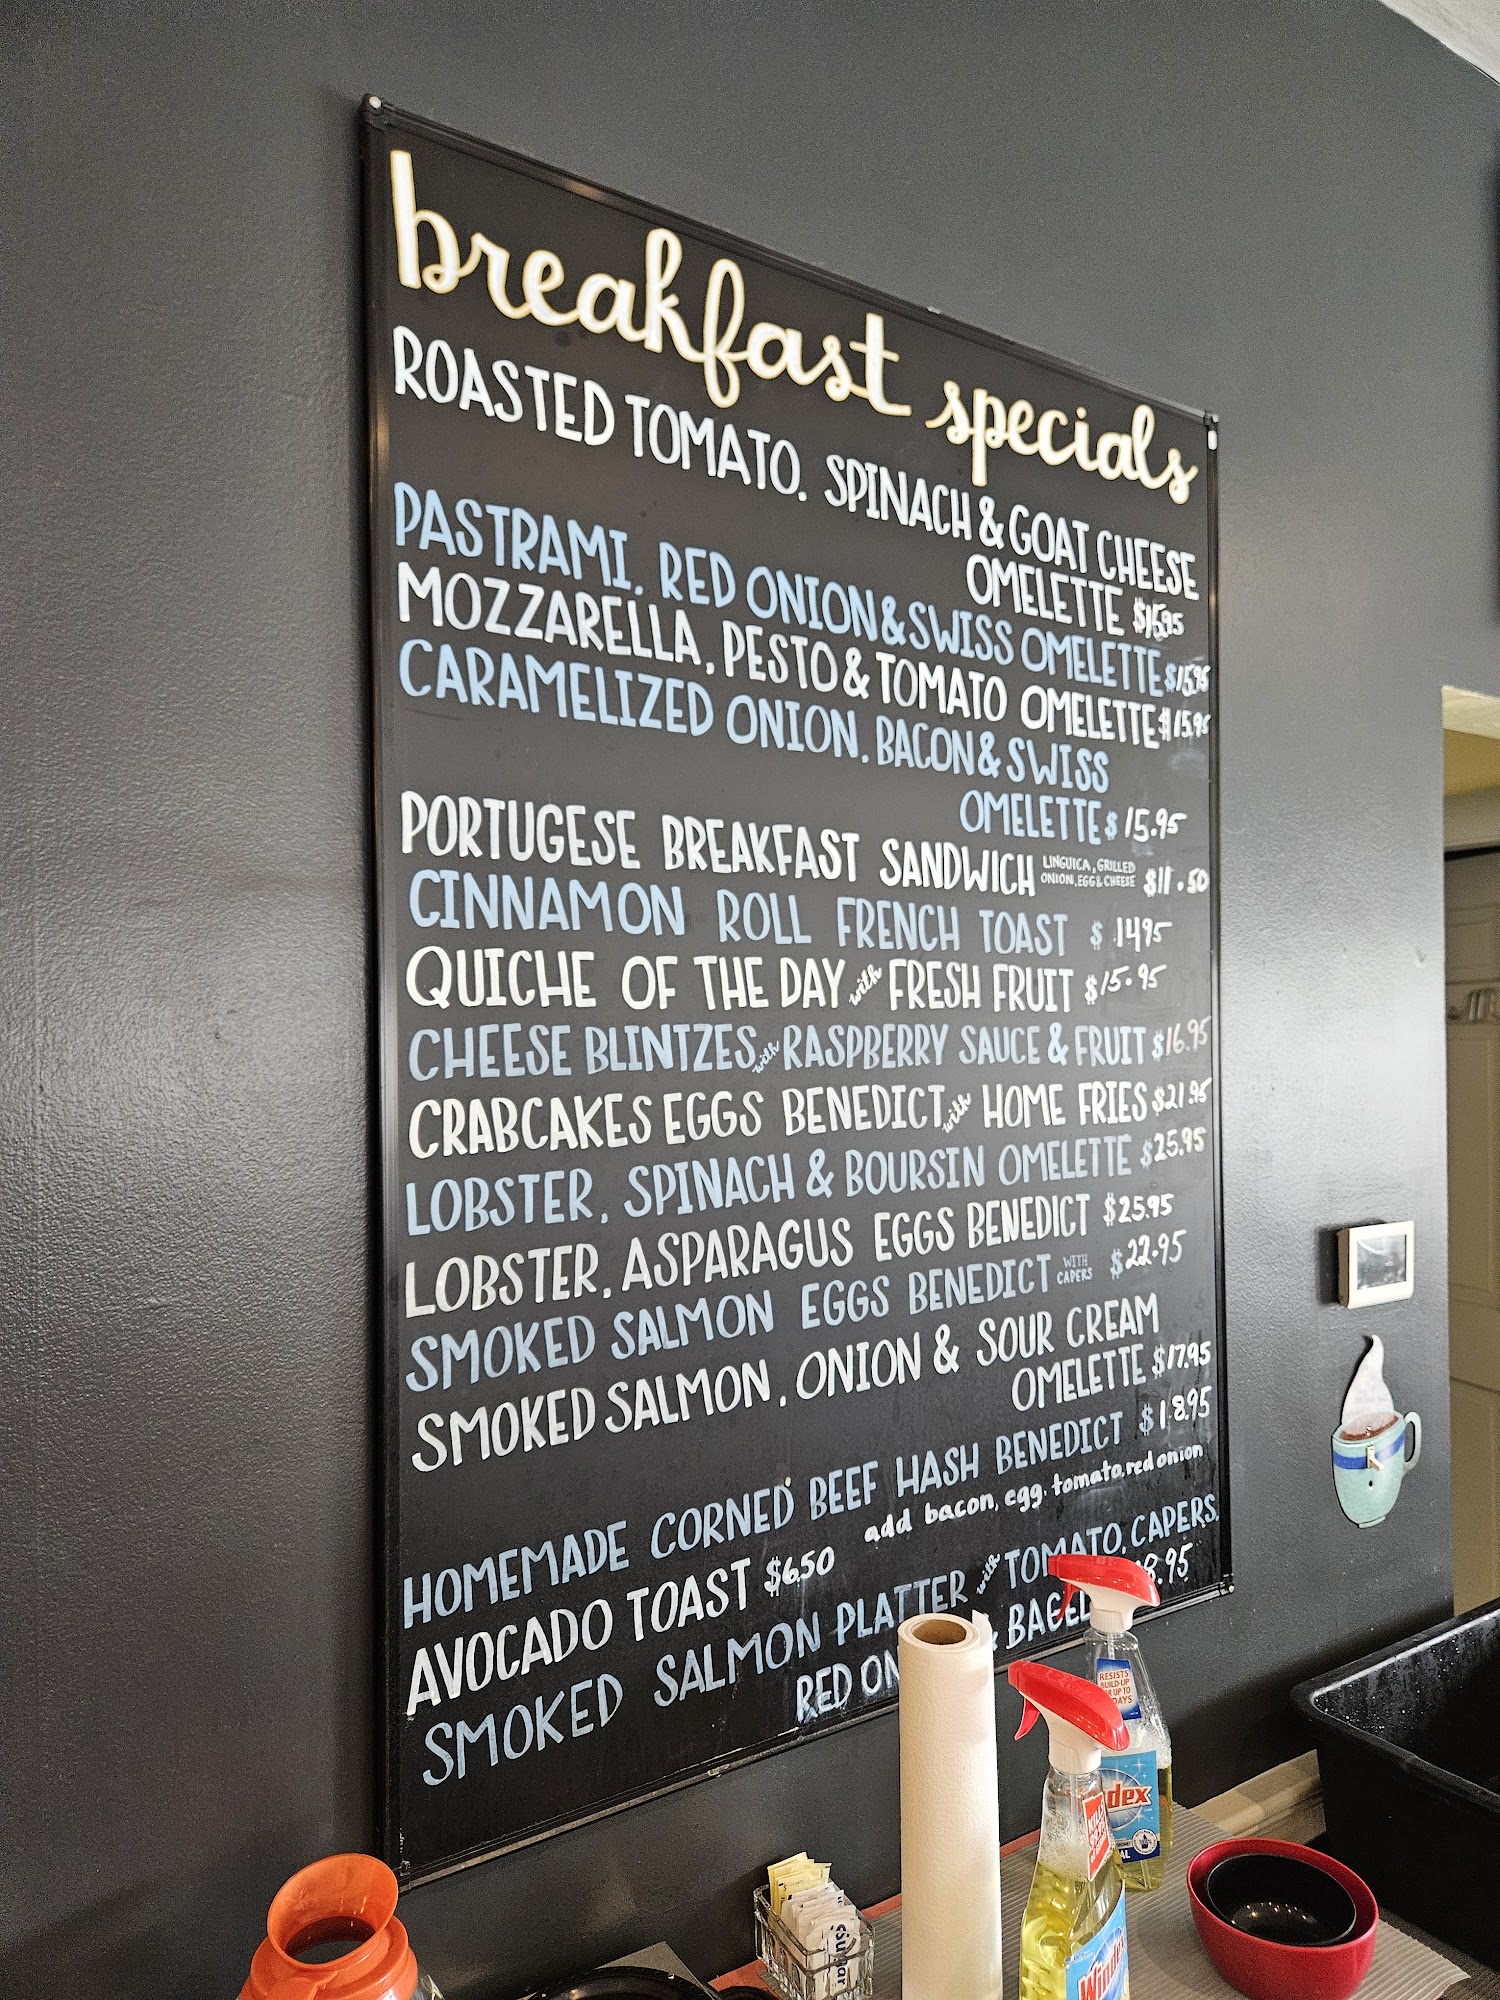 breakfast specials
ROASTED TOMATO, SPINACH & GOAT CHEESE
OMELETTE $15.95
PASTRAMI, RED ONION & SWISS OMELETTE $15.95
MOZZARELLA, PESTO & TOMATO OMELETTE $15.95
CARAMELIZED ONION, BACON & SWISS
OMELETTE $15.95
PORTUGESE BREAKFAST SANDWICH LINGUICA, GRILLED
ONION, EGG & CHEESE $11.50
CINNAMON ROLL FRENCH TOAST $14.95
QUICHE OF THE DAY with FRESH FRUIT $15.95
CHEESE BLINTZES with RASPBERRY SAUCE & FRUIT $16.95
CRABCAKES EGGS BENEDICT with HOME FRIES $21.95
LOBSTER, SPINACH & BOURSIN OMELETTE $25.95
LOBSTER, ASPARAGUS EGGS BENEDICT $25.95
SMOKED SALMON EGGS BENEDICT WITH
CAPERS $22.95
SMOKED SALMON, ONION & SOUR CREAM
OMELETTE $17.95
HOMEMADE CORNED BEEF HASH BENEDICT $18.95
add bacon, egg, tomato, red onion
AVOCADO TOAST $6.50
SMOKED SALMON PLATTER with TOMATO, CAPERS,
RED ON & BAGEL 8.95
RESISTS
BUILD-UP
UP TO
DAYS
dex
Windex
Sugar